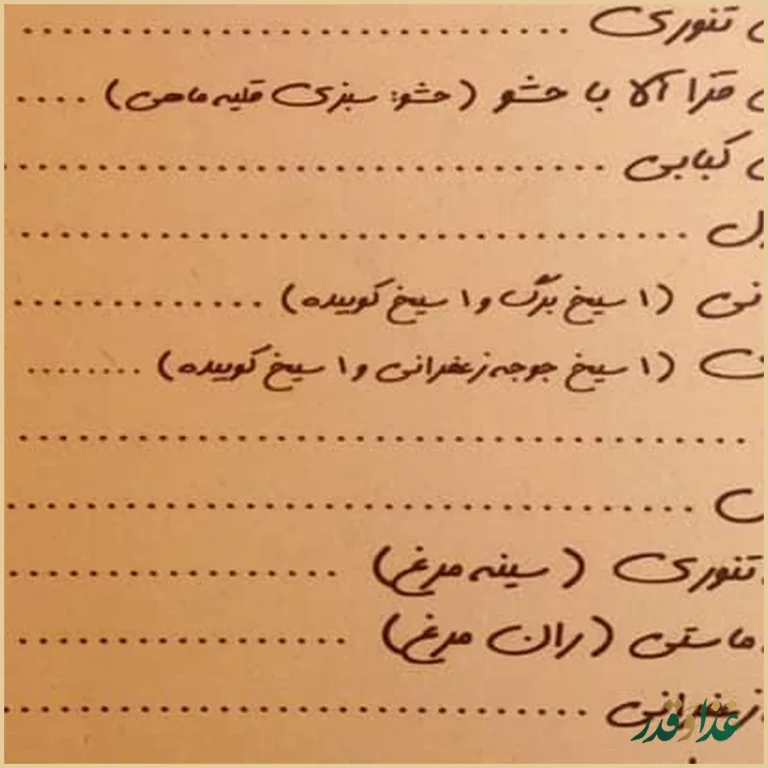 تنوری
قزل آلا با حشو (حشو: سبزی قلیه ماهی)
کبابی
(۱ سیخ برگ و ۱ سیخ کوبیده)
(۱ سیخ جوجه زعفرانی و ۱ سیخ کوبیده)
تنوری (سینه مرغ)
ماستی (ران مرغ)
زعفرانی
غذا و قدر